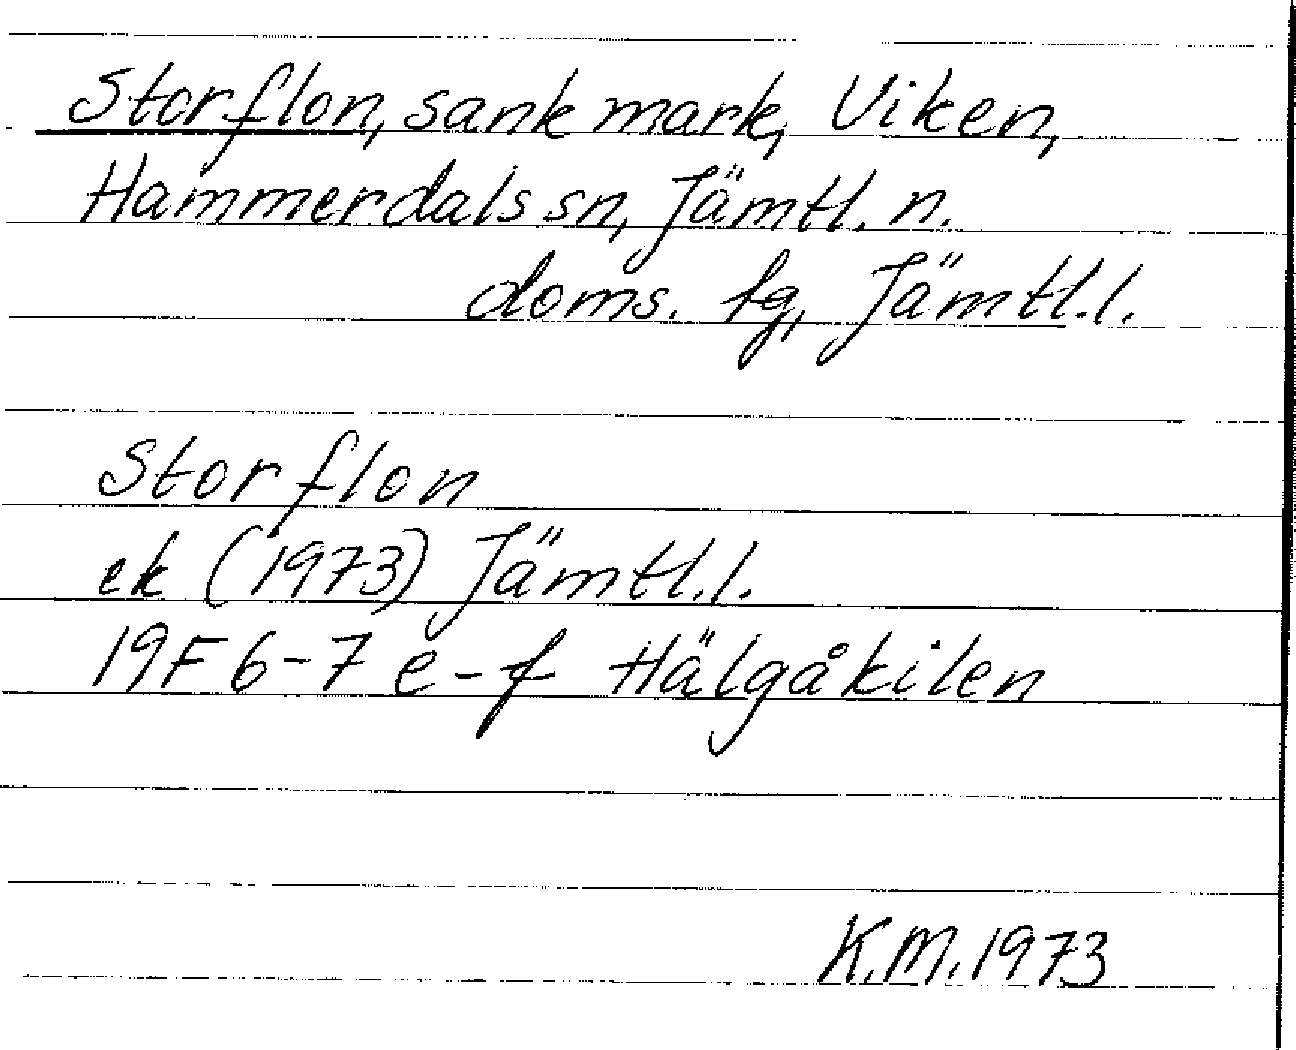 Storflon, sank mark, Viken,
Hammerdals sn, Jämtl. n.
doms. tg, Jämtl.l.
Storflon
ek (1973) Jämtl.l.
19F 6-7 e-f Hälgåkilen
K.M. 1973